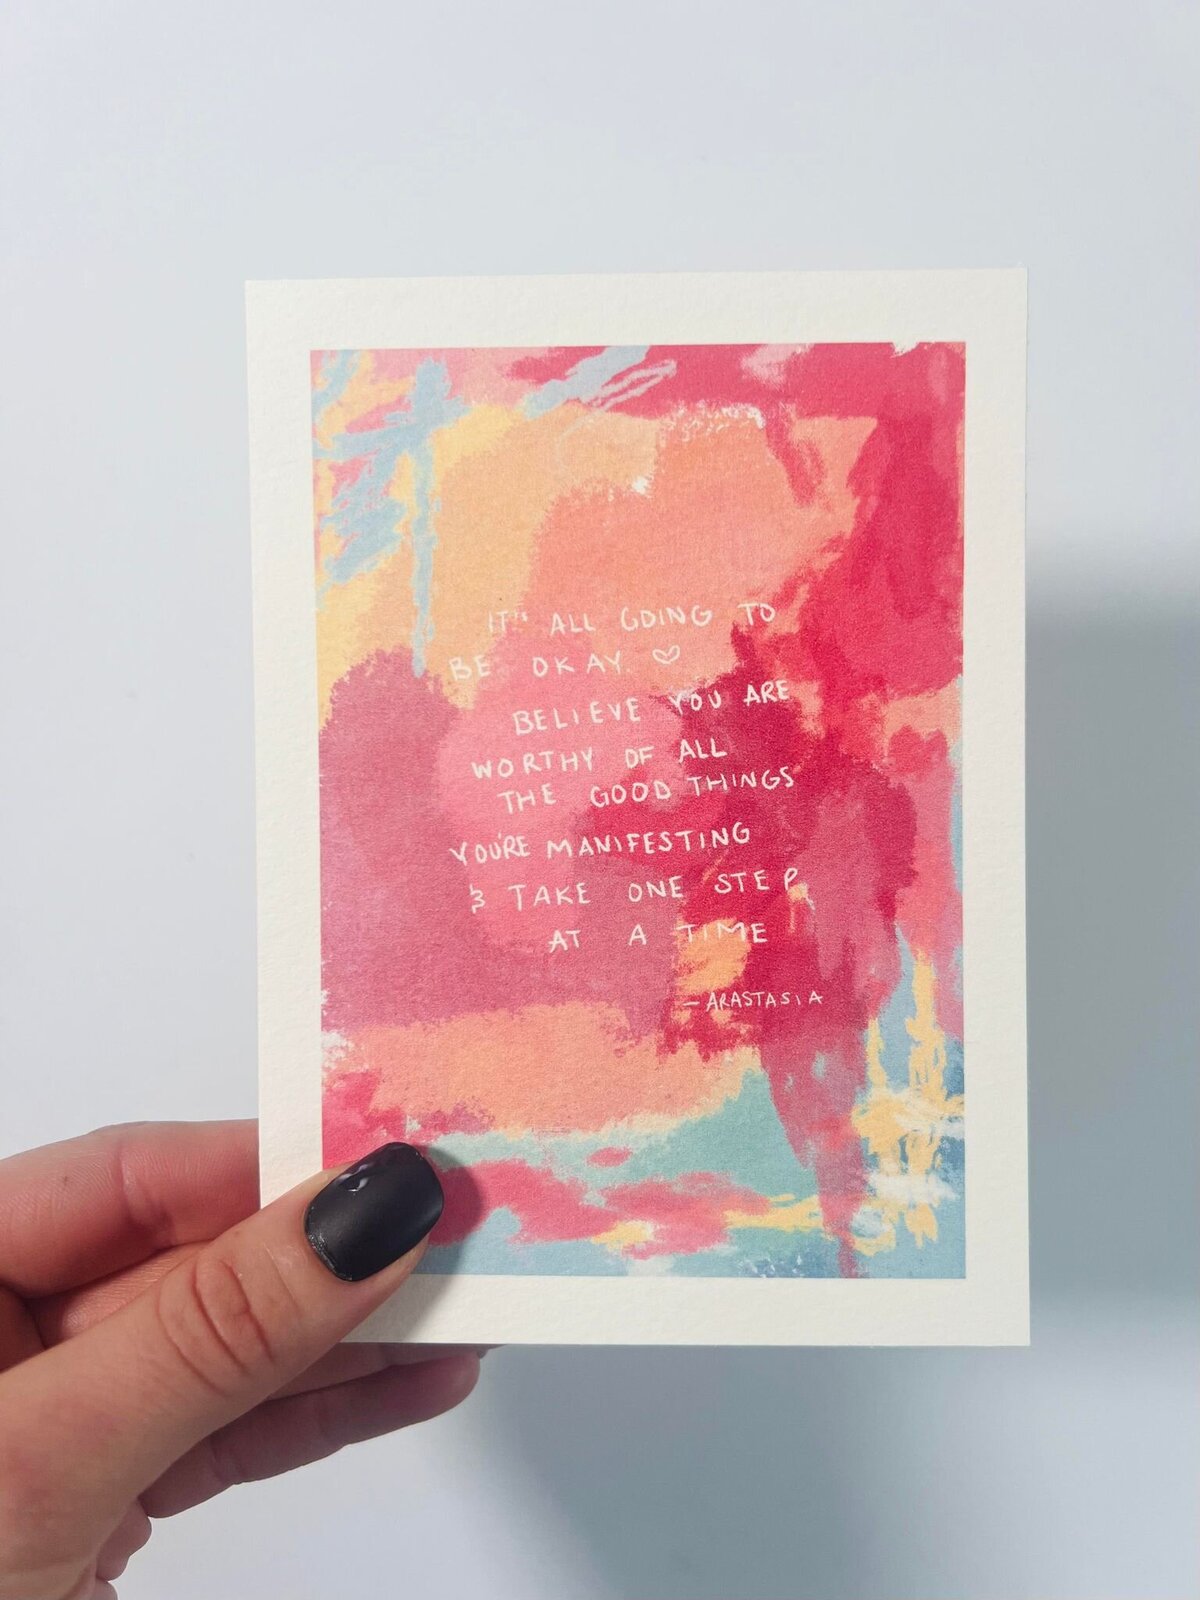 IT'S ALL GOING TO
BE OKAY. ♡
BELIEVE YOU ARE
WORTHY OF ALL
THE GOOD THINGS
YOU'RE MANIFESTING
& TAKE ONE STEP
AT A TIME
- ARASTASIA